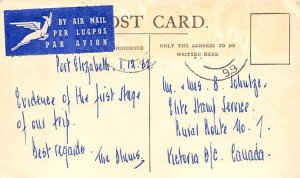 POST CARD.
BY AIR MAIL
PER LUGPOS
PAR AVION
ONLY THE ADDRESS TO BE
WRITTEN HERE
Port Elizabeth 1.12.62
Evidence of the first stage
of our trip.
Best regards. The
Mr. & Mrs. B. Schultze.
Elite Stamp Service.
Rural Route No. 1
Victoria B/C. Canada.